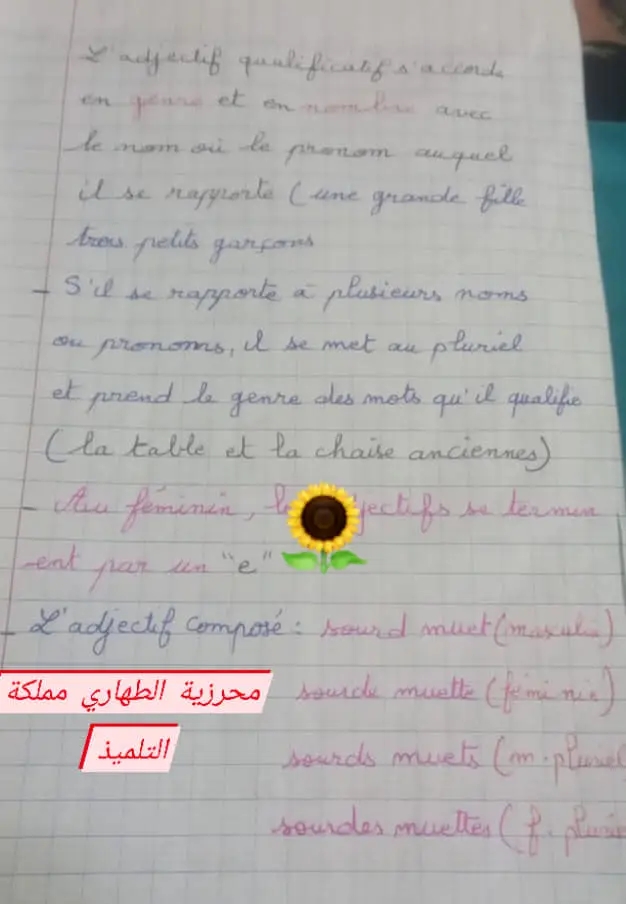 L'adjectif qualificatif s'accorde
en genre et en nombre avec
le nom ou le pronom auquel
il se rapporte ( une grande fille
trois petits garçons
- S'il se rapporte à plusieurs noms
ou pronoms, il se met au pluriel
et prend le genre des mots qu'il qualifie
( la table et la chaise anciennes)
- Au féminin, jectifs se termin
ent par un "e"
- L'adjectif composé : sourd muet (masculin)
محرزية الطهاري مملكة
التلميذ
sourde muette (féminin)
sourds muets (m. pluriel
sourdes muettes ( f. plurie